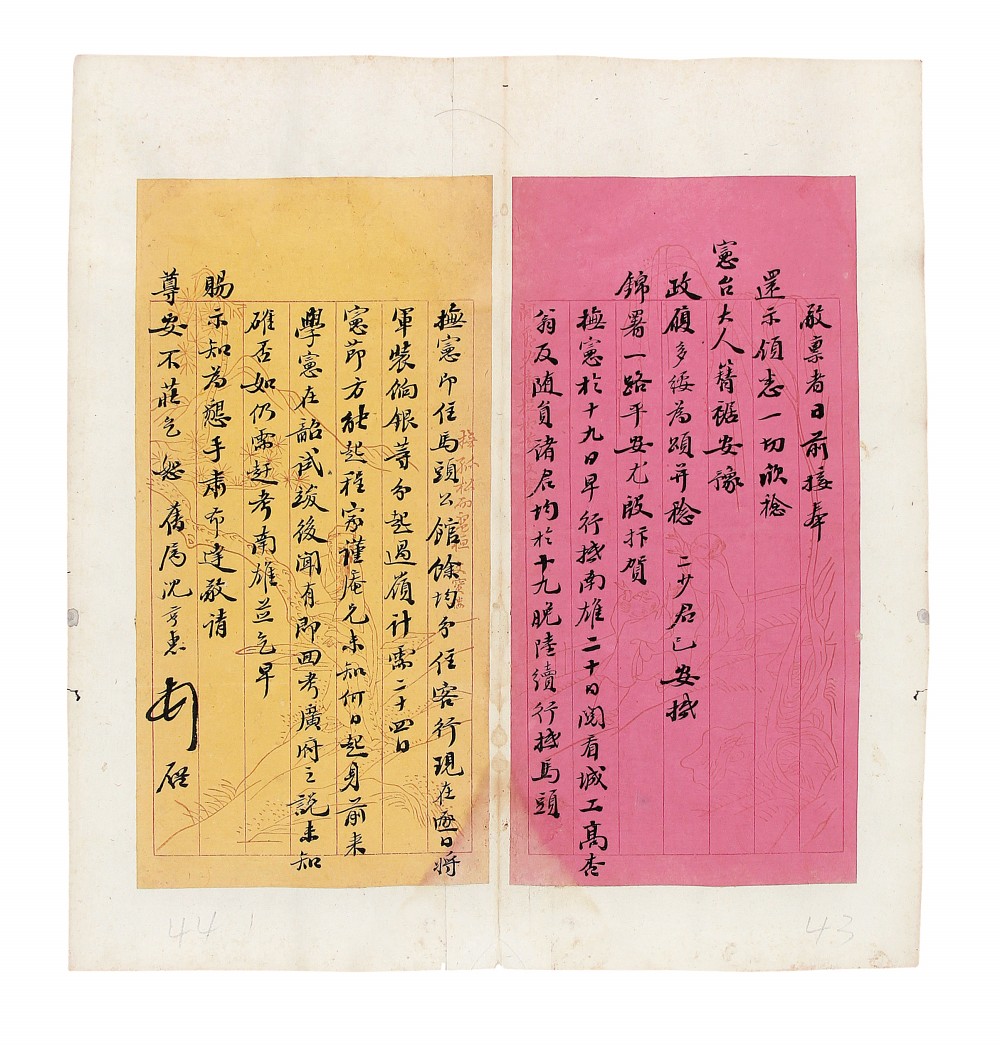 敬稟者日前接奉
還示領悉一切欣稔
憲台大人簪裾安豫
政履多綏為頌并稔 二少君已安抵
錦署一路平安尤殷抃賀
撫憲於十九日早行抵南雄二十日閱看城工高杏
翁及隨員諸君均於十九晚陸續行抵馬頭
撫憲即住馬頭公館餘均分住客行現在逐日將
軍裝餉銀等分起過嶺計需二十四日
憲節方能起程家謹庵兄未知何日起身前来
學憲在韶試竣後聞有即回考廣府之說未知
確否如仍需赶考南雄並乞早
賜示知為懇手肅布達敬請
尊安不莊乞恕 舊屬沈
啓
43
44